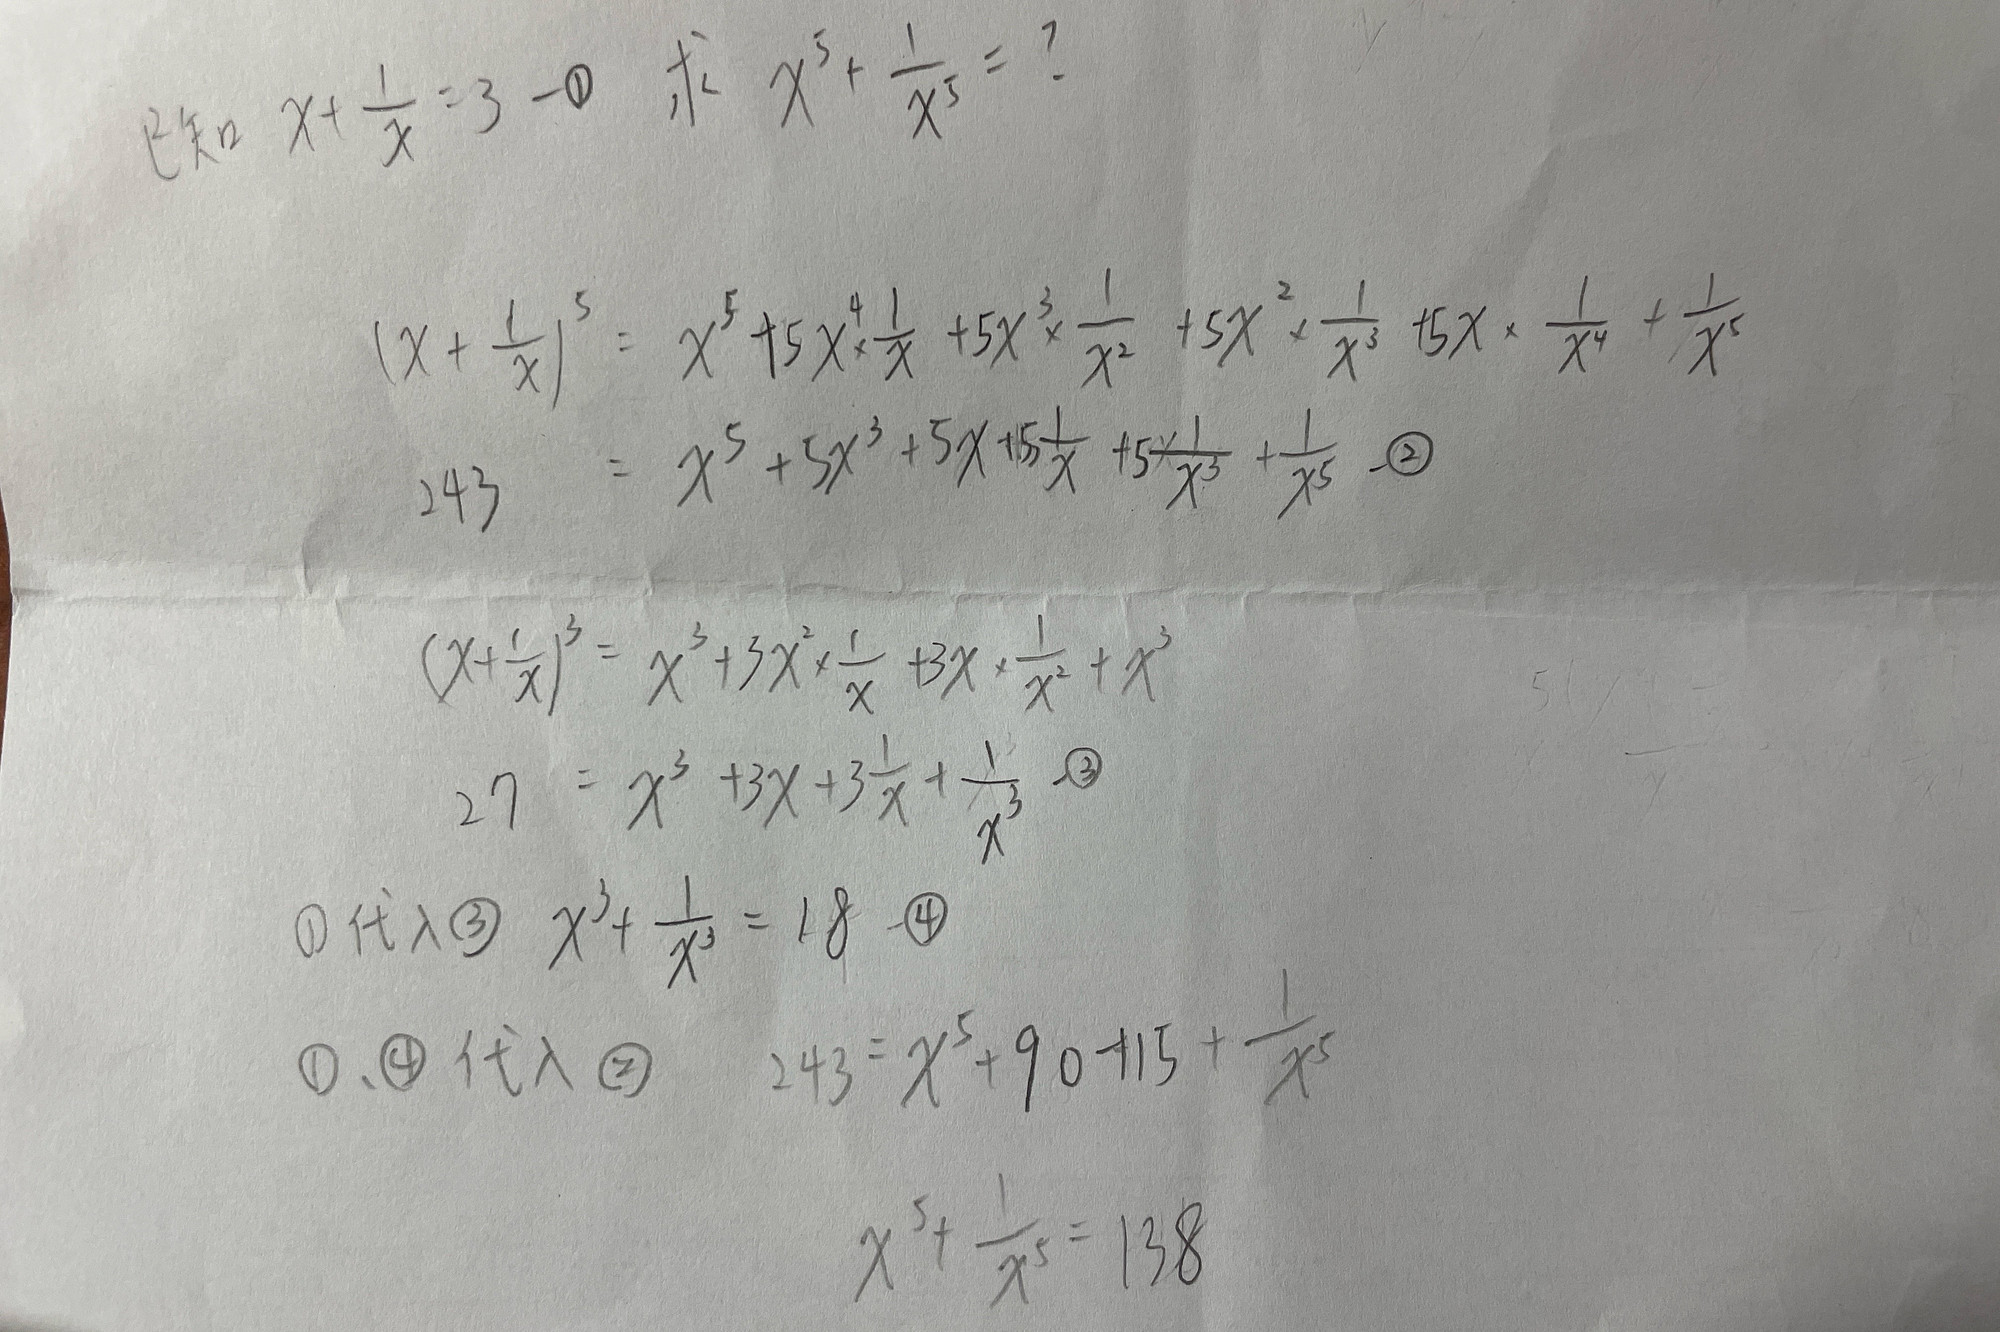 已知 x + 1/x = 3 —① 求 x⁵ + 1/x⁵ = ?
(x + 1/x)⁵ = x⁵ + 5x⁴ × 1/x + 5x³ × 1/x² + 5x² × 1/x³ + 5x × 1/x⁴ + 1/x⁵
243 = x⁵ + 5x³ + 5x + 5 1/x + 5 × 1/x³ + 1/x⁵ —②
(x + 1/x)³ = x³ + 3x² × 1/x + 3x × 1/x² + x³
27 = x³ + 3x + 3 1/x + 1/x³ —③
①代入③ x³ + 1/x³ = 18 —④
①、④代入② 243 = x⁵ + 90 + 15 + 1/x⁵
x⁵ + 1/x⁵ = 138